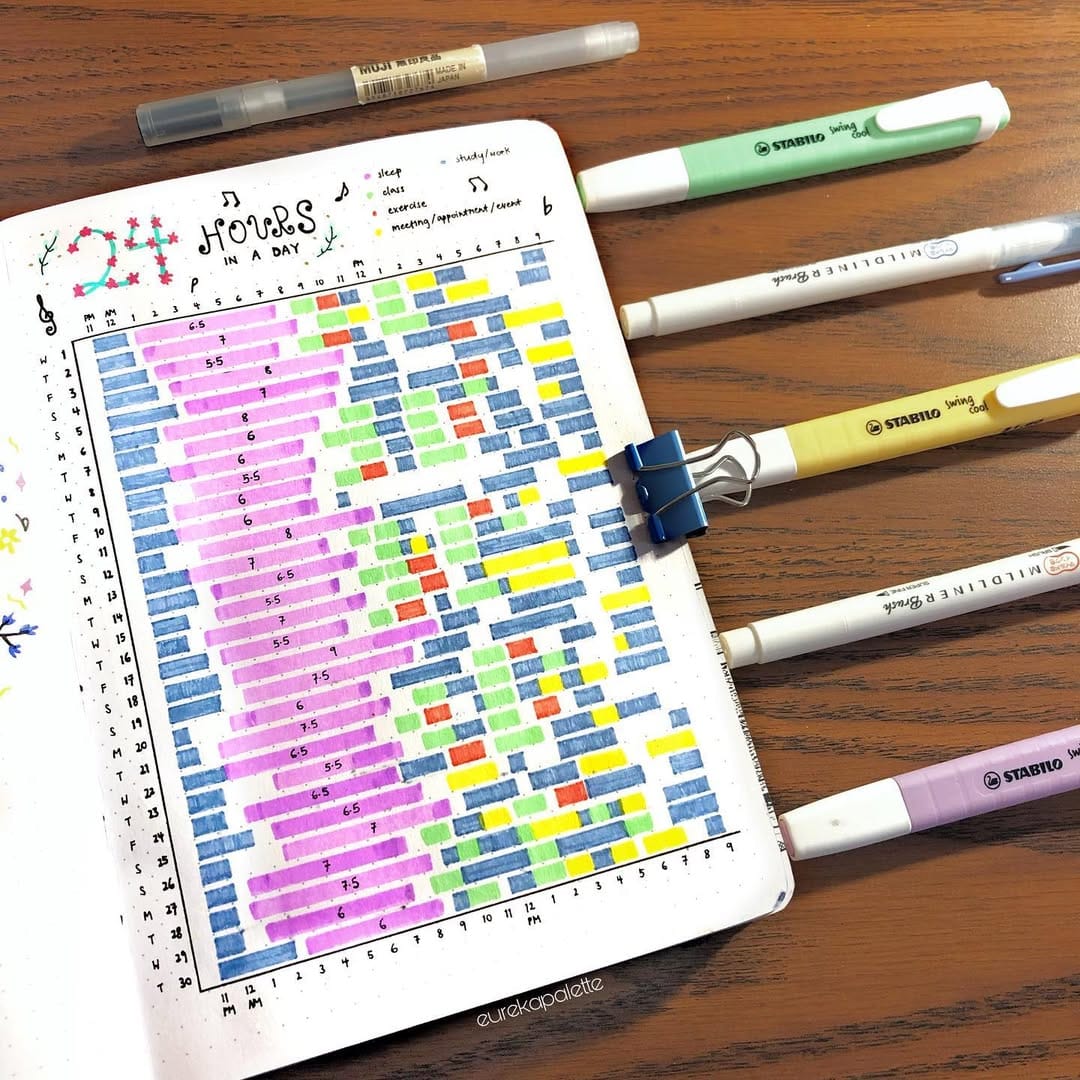 MUJI 無印良品
MADE IN JAPAN
STABILO swing cool
MILDLINER Brush
STABILO swing cool
MILDLINER Brush
SUPER FINE
STABILO
24 HOURS
IN A DAY
sleep
class
exercise
meeting/appointment/event
study/work
PM AM PM
11 12 1 2 3 4 5 6 7 8 9 10 11 12 1 2 3 4 5 6 7 8 9
W 1 6.5
T 2 7
F 3 5.5
S 4 8
S 5 7
M 6 8
T 7 6
W 8 6
T 9 5.5
F 10 6
S 11 6
S 12 8
M 13 7
T 14 6.5
W 15 5.5
T 16 7
F 17 5.5
S 18 9
S 19 7.5
M 20 6
T 21 7.5
W 22 6.5
T 23 5.5
F 24 6.5
S 25 6.5
S 26 7
M 27 7
T 28 7.5
W 29 6
T 30 6
11 12 1 2 3 4 5 6 7 8 9 10 11 12 1 2 3 4 5 6 7 8 9
PM AM PM
eurekapalette